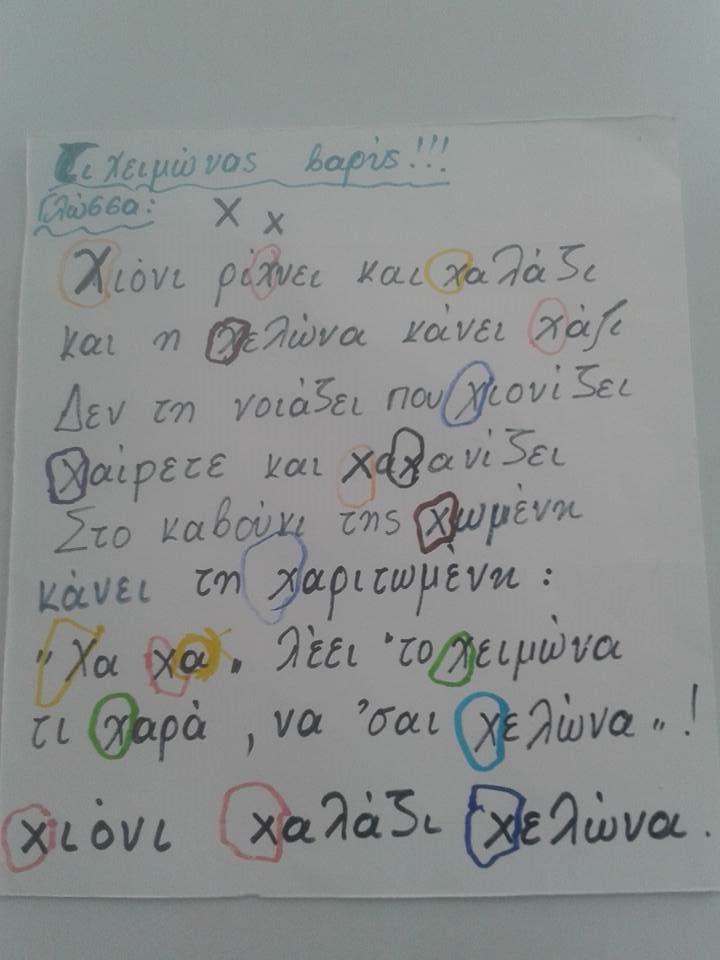 Τι χειμώνας βαρύς!!!
Γλώσσα: Χ χ
Χιόνι ρίχνει και χαλάζι
και η χελώνα κάνει χάζι
Δεν τη νοιάζει που χιονίζει
χαίρετε και χαχανίζει
Στο καβούκι της χωμένη
κάνει τη χαριτωμένη:
"Χα χα". λέει 'το χειμώνα
τι χαρά, να 'σαι χελώνα"!
χιόνι χαλάζι χελώνα.